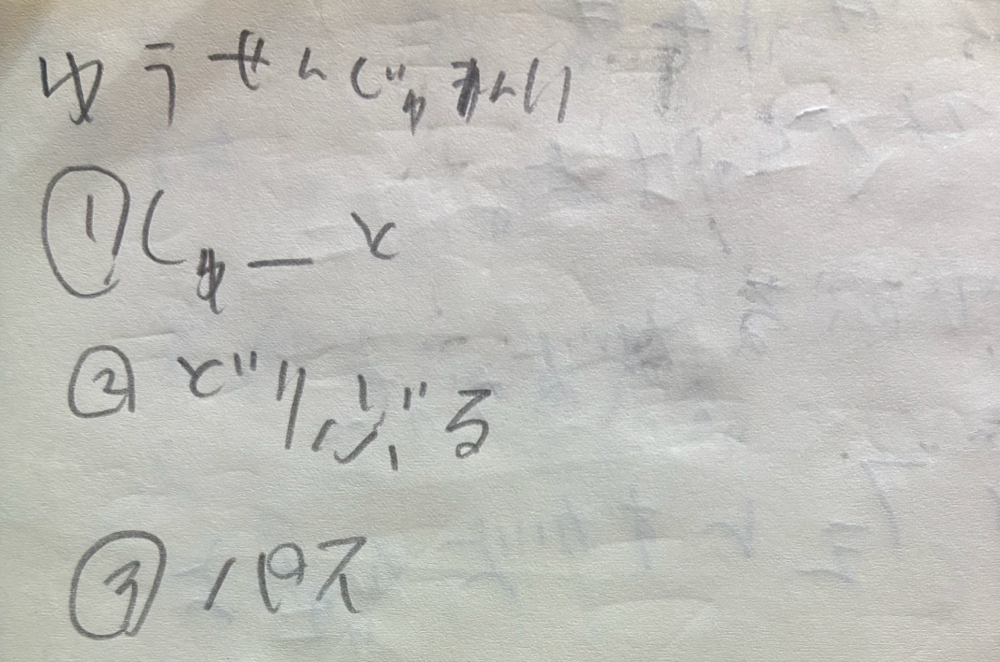 ゆうせんじゅんい
①しゅーと
②どりぶる
③パス